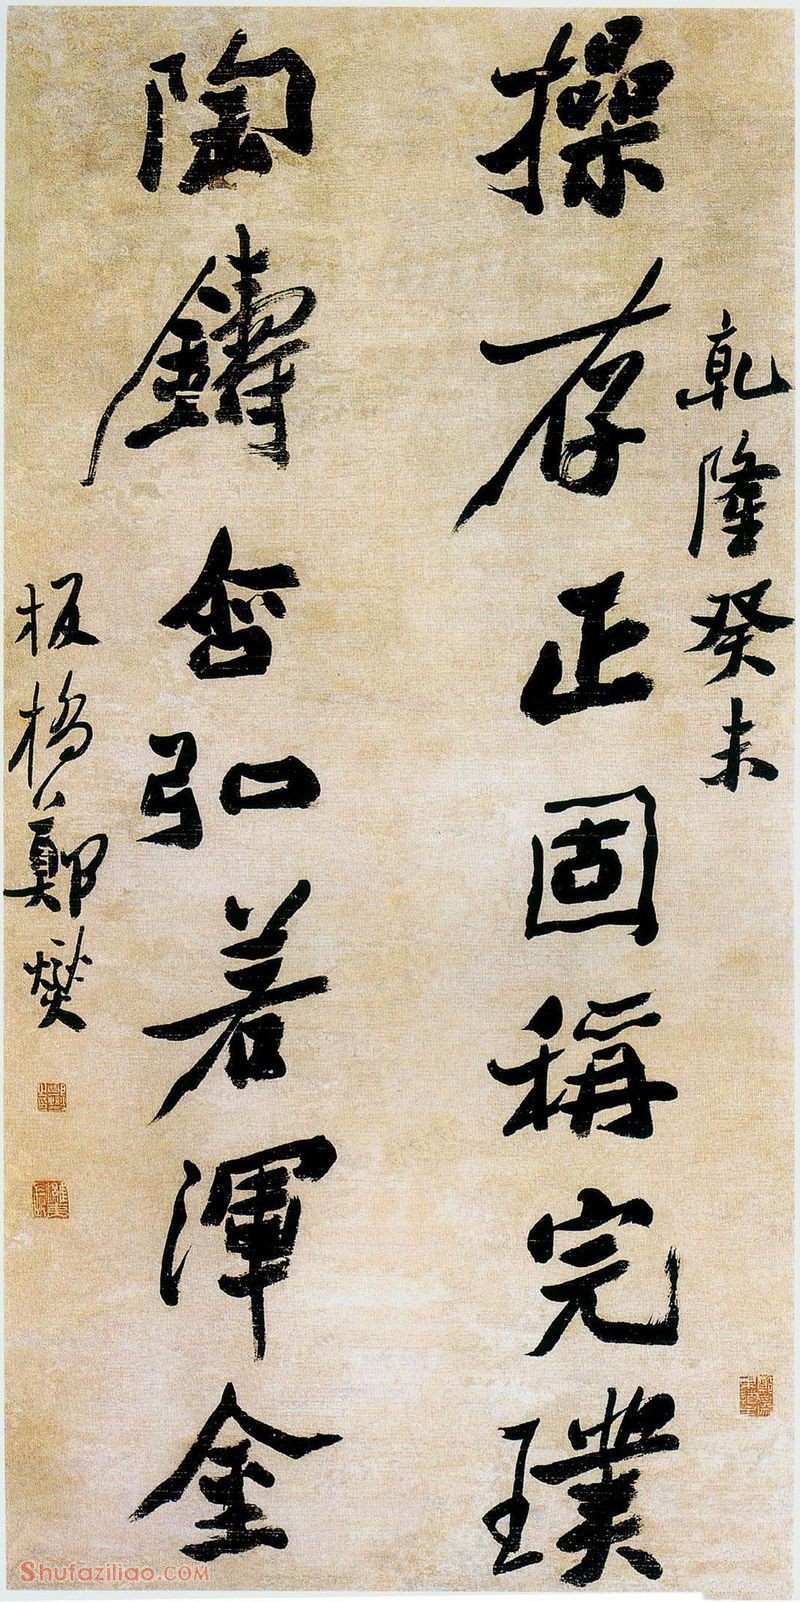 乾隆癸未
操存正固稱完璞
陶鑄含弘若渾金
板橋鄭燮
Shufaziliao.COM